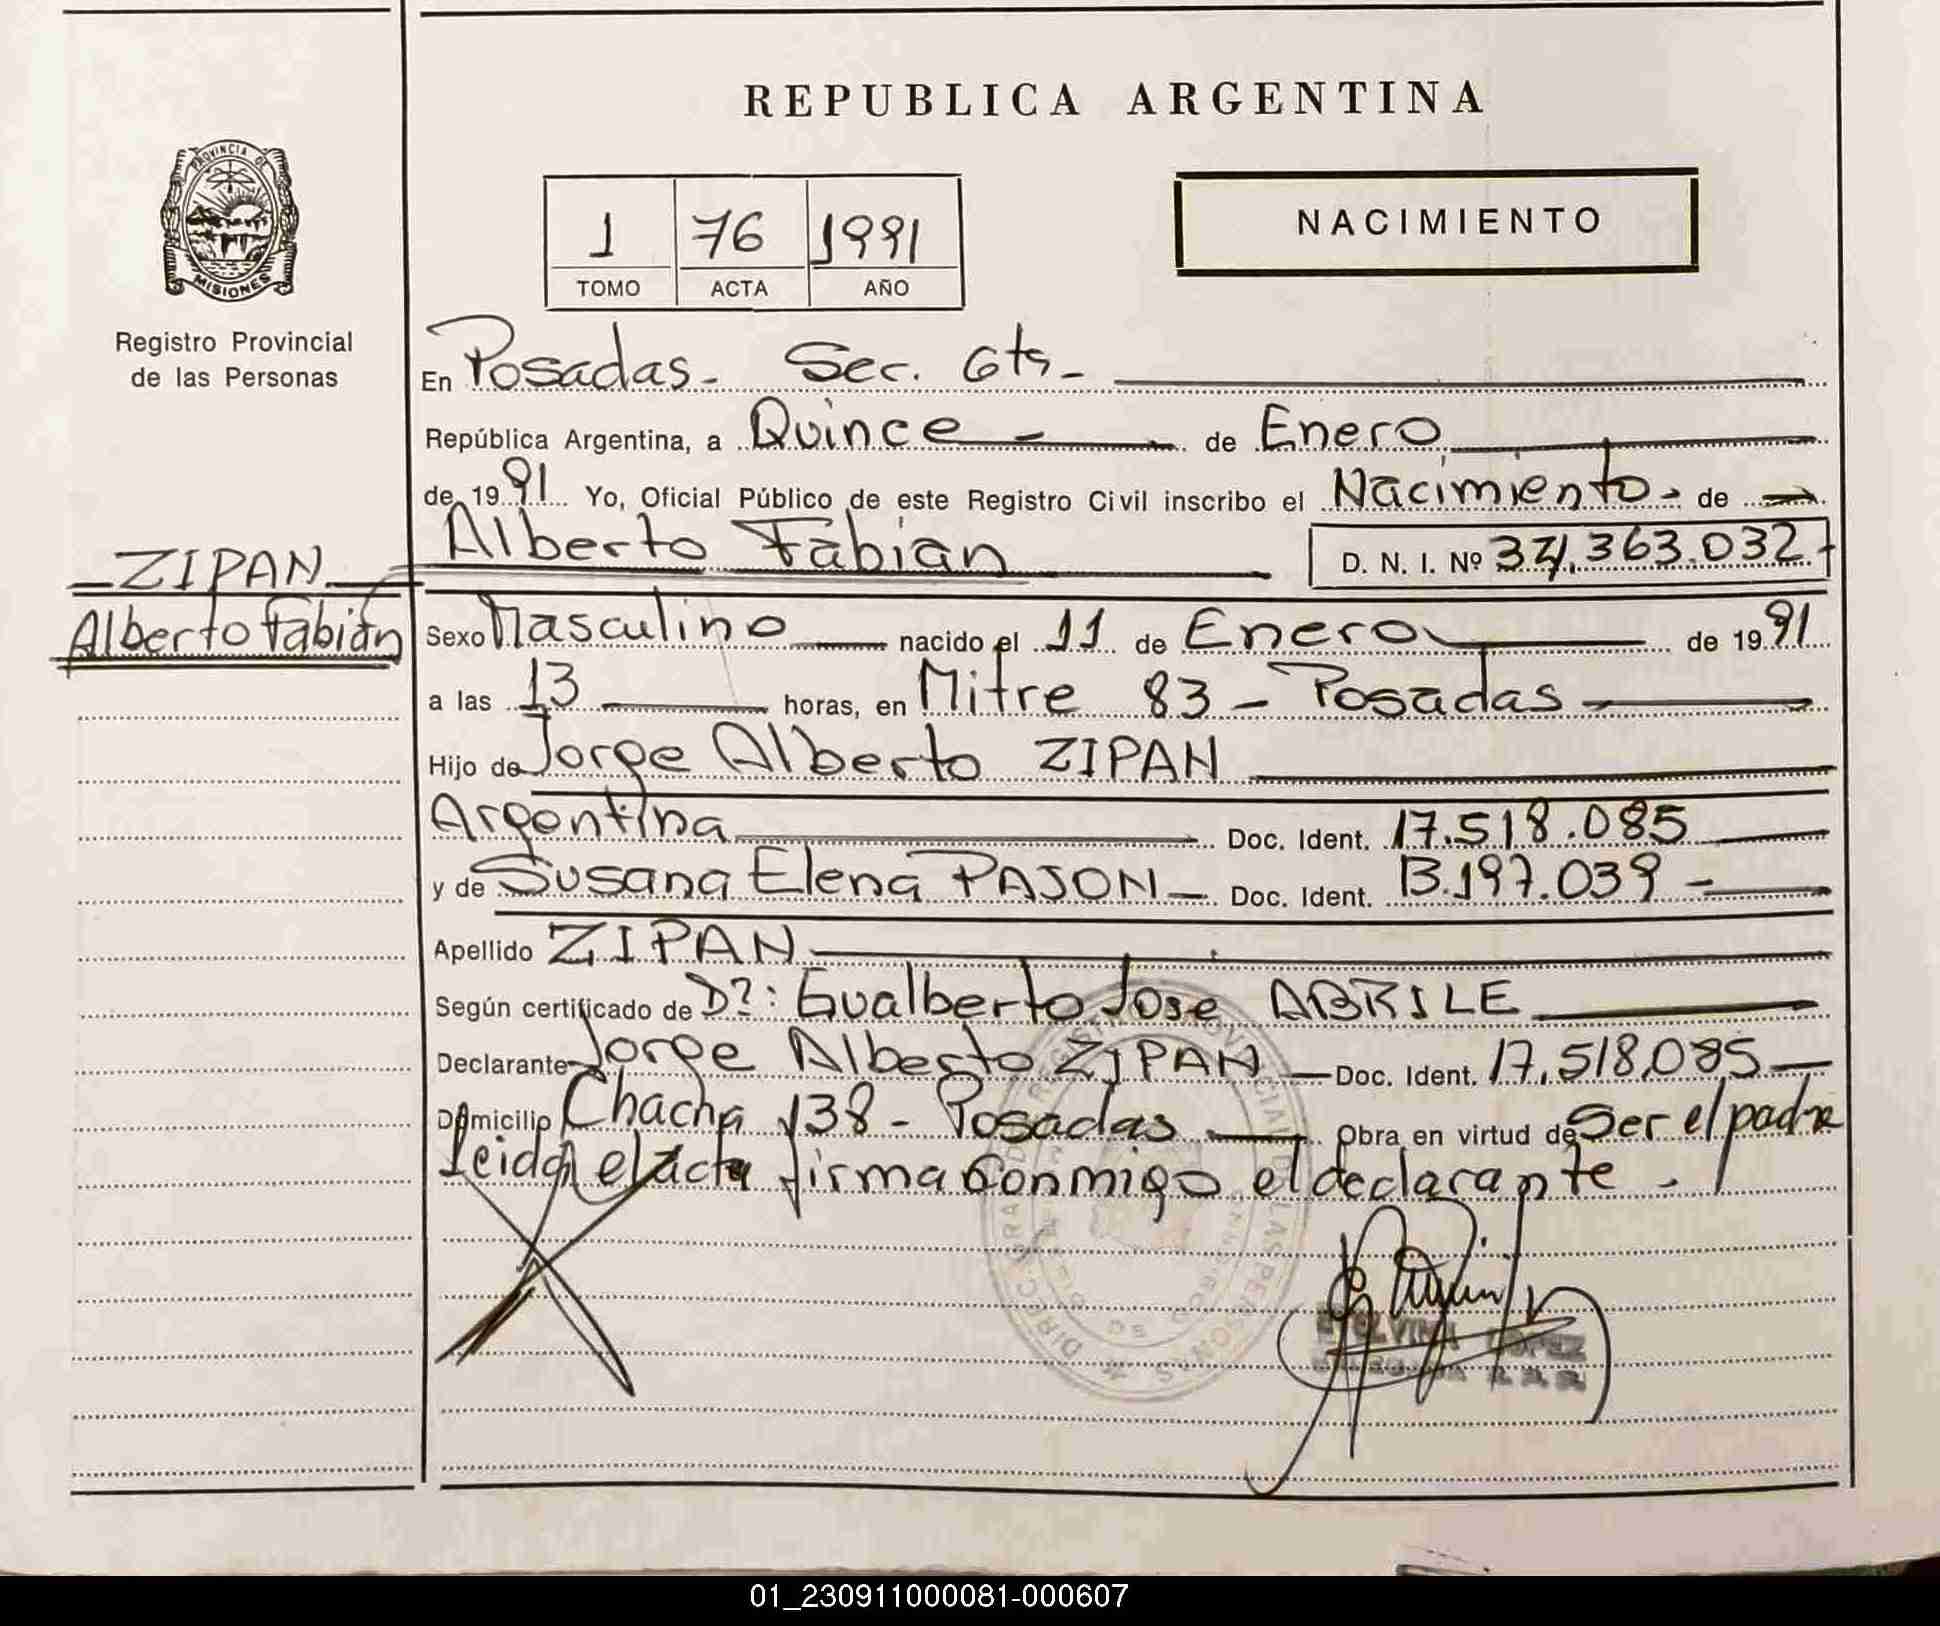 REPUBLICA ARGENTINA
PROVINCIA DE
MISIONES
Registro Provincial
de las Personas
1 76 1991
TOMO ACTA AÑO
NACIMIENTO
En Posadas - Sec. 6ta -
República Argentina, a Quince - de Enero
de 1991 Yo, Oficial Público de este Registro Civil inscribo el Nacimiento - de
Alberto Fabián D. N. I. Nº .363.032-
ZIPAN
Alberto Fabián
Sexo Masculino nacido el 11 de Enero de 1991
a las 13 horas, en Mitre 83 - Posadas
Hijo de Jorge Alberto ZIPAN
Argentina Doc. Ident. 17.518.085
y de Susana Elena PAJON - Doc. Ident. 13.197.039 -
Apellido ZIPAN
Según certificado de Dr: Gualberto José ABRILE
Declarante Jorge Alberto ZIPAN - Doc. Ident. 17.518.085 -
Domicilio 138 - Posadas Obra en virtud de Ser el padre
Leida el acta firma conmigo el declarante -
LOPEZ
01_230911000081-000607